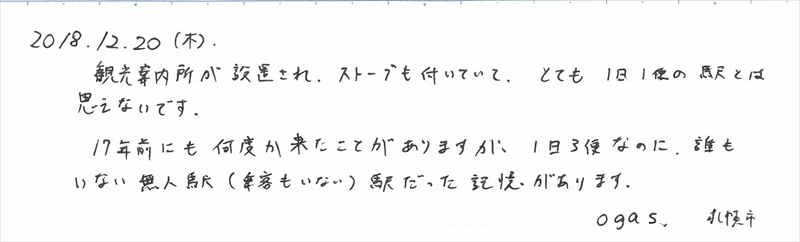 2018.12.20(木).
観光案内所が設置され、ストーブも付いていて、とても1日1便の駅とは
思えないです。
17年前にも何度か来たことがありますが、1日3便なのに、誰も
いない無人駅(乗客もいない)駅だった記憶があります。
ogas、 札幌市